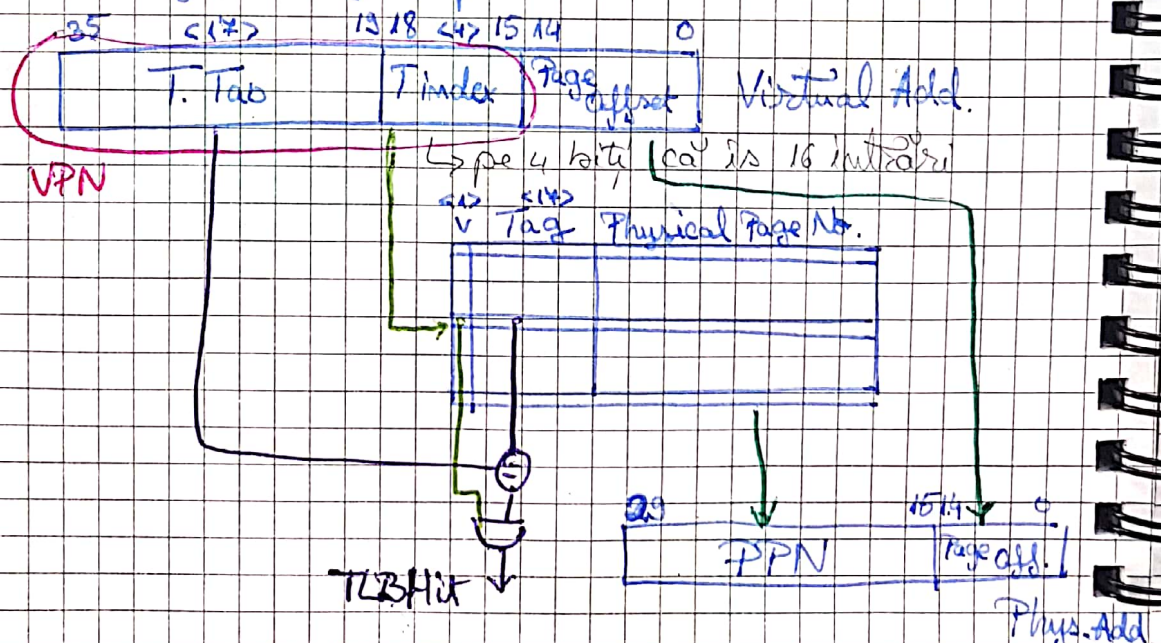 35 <17> 19 18 <4> 15 14 0
T. Tab Tindex Page offset Virtual Add.
VPN
↳ pe 4 biți că is 16 intrări
<1> <17>
V Tag Physical Page No.
=
29 15 14 0
PPN Page off.
TLB Hit
Phys. Add